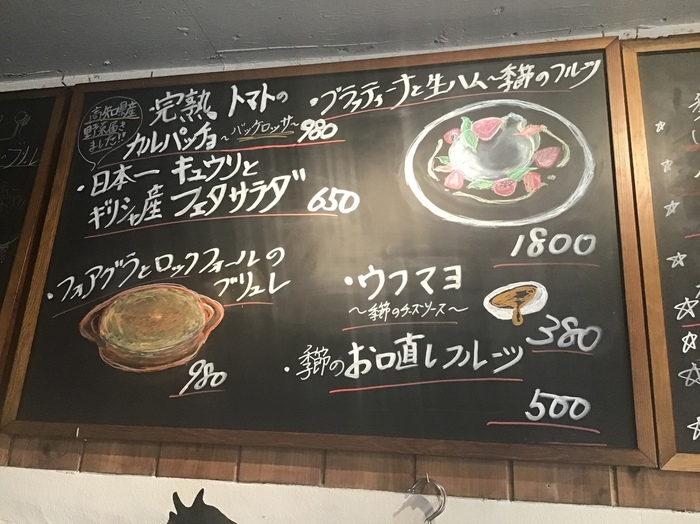 高知県産
野菜届き
ました!!
・完熟 トマトの
カルパッチョ 〜バッケロッサ〜 980
・日本一 キュウリと
ギリシャ産 フェタサラダ 650
・ブラッティーナと生ハム〜季節のフルーツ
1800
・フォアグラとロックフォールの
ブリュレ
980
・ウフマヨ
〜季節のチーズソース〜
380
・季節のお口直しフルーツ
500